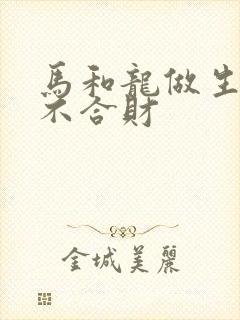 馬和龍做生
不合財
金城美麗